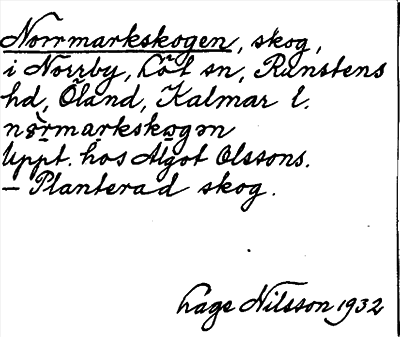 Norrmarkskogen, skog,
i Norrby, Löt sn, Runstens
hd, Öland, Kalmar l.
nòrmarkskogən
Uppt. hos Algot Olssons.
– Planterad skog.
Lage Nilsson 1932